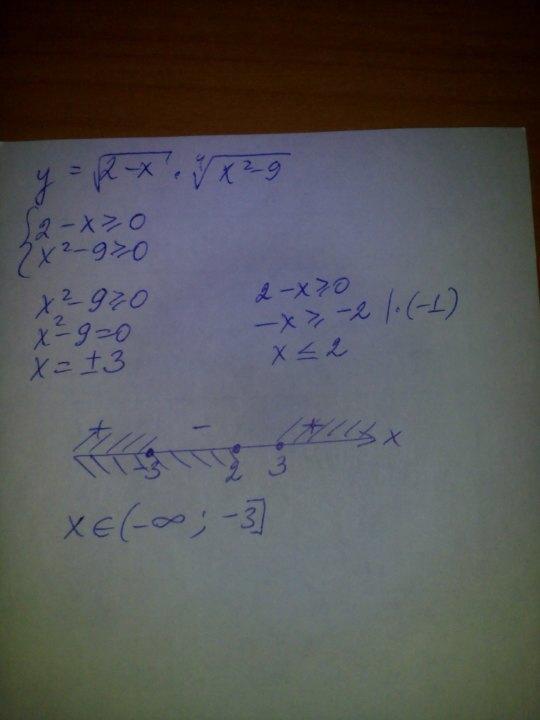 y = √(2-x) · ⁴√(x²-9)
{ 2-x≥0
x²-9≥0
x²-9≥0
x²-9=0
x=±3
2-x≥0
-x≥-2 |·(-1)
x≤2
+ - +
-3 2 3 x
x∈(-∞; -3]